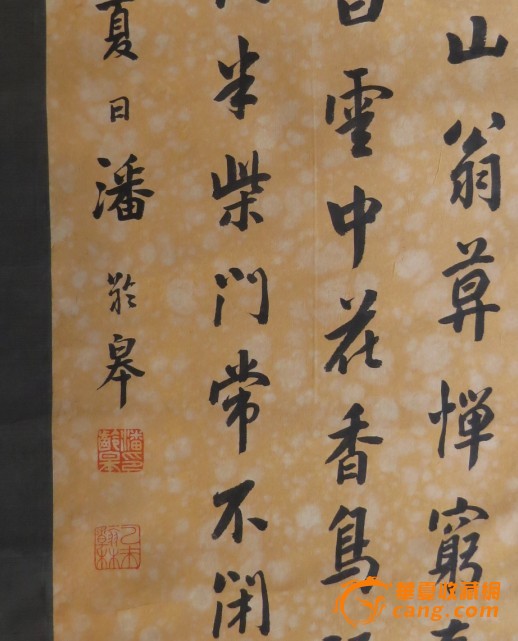 山翁莫惮窮
白雲中花香鳥
半柴門常不閉
夏日潘齡皋
潘印齡皋
乙未翰林
華夏收藏網
cang.com